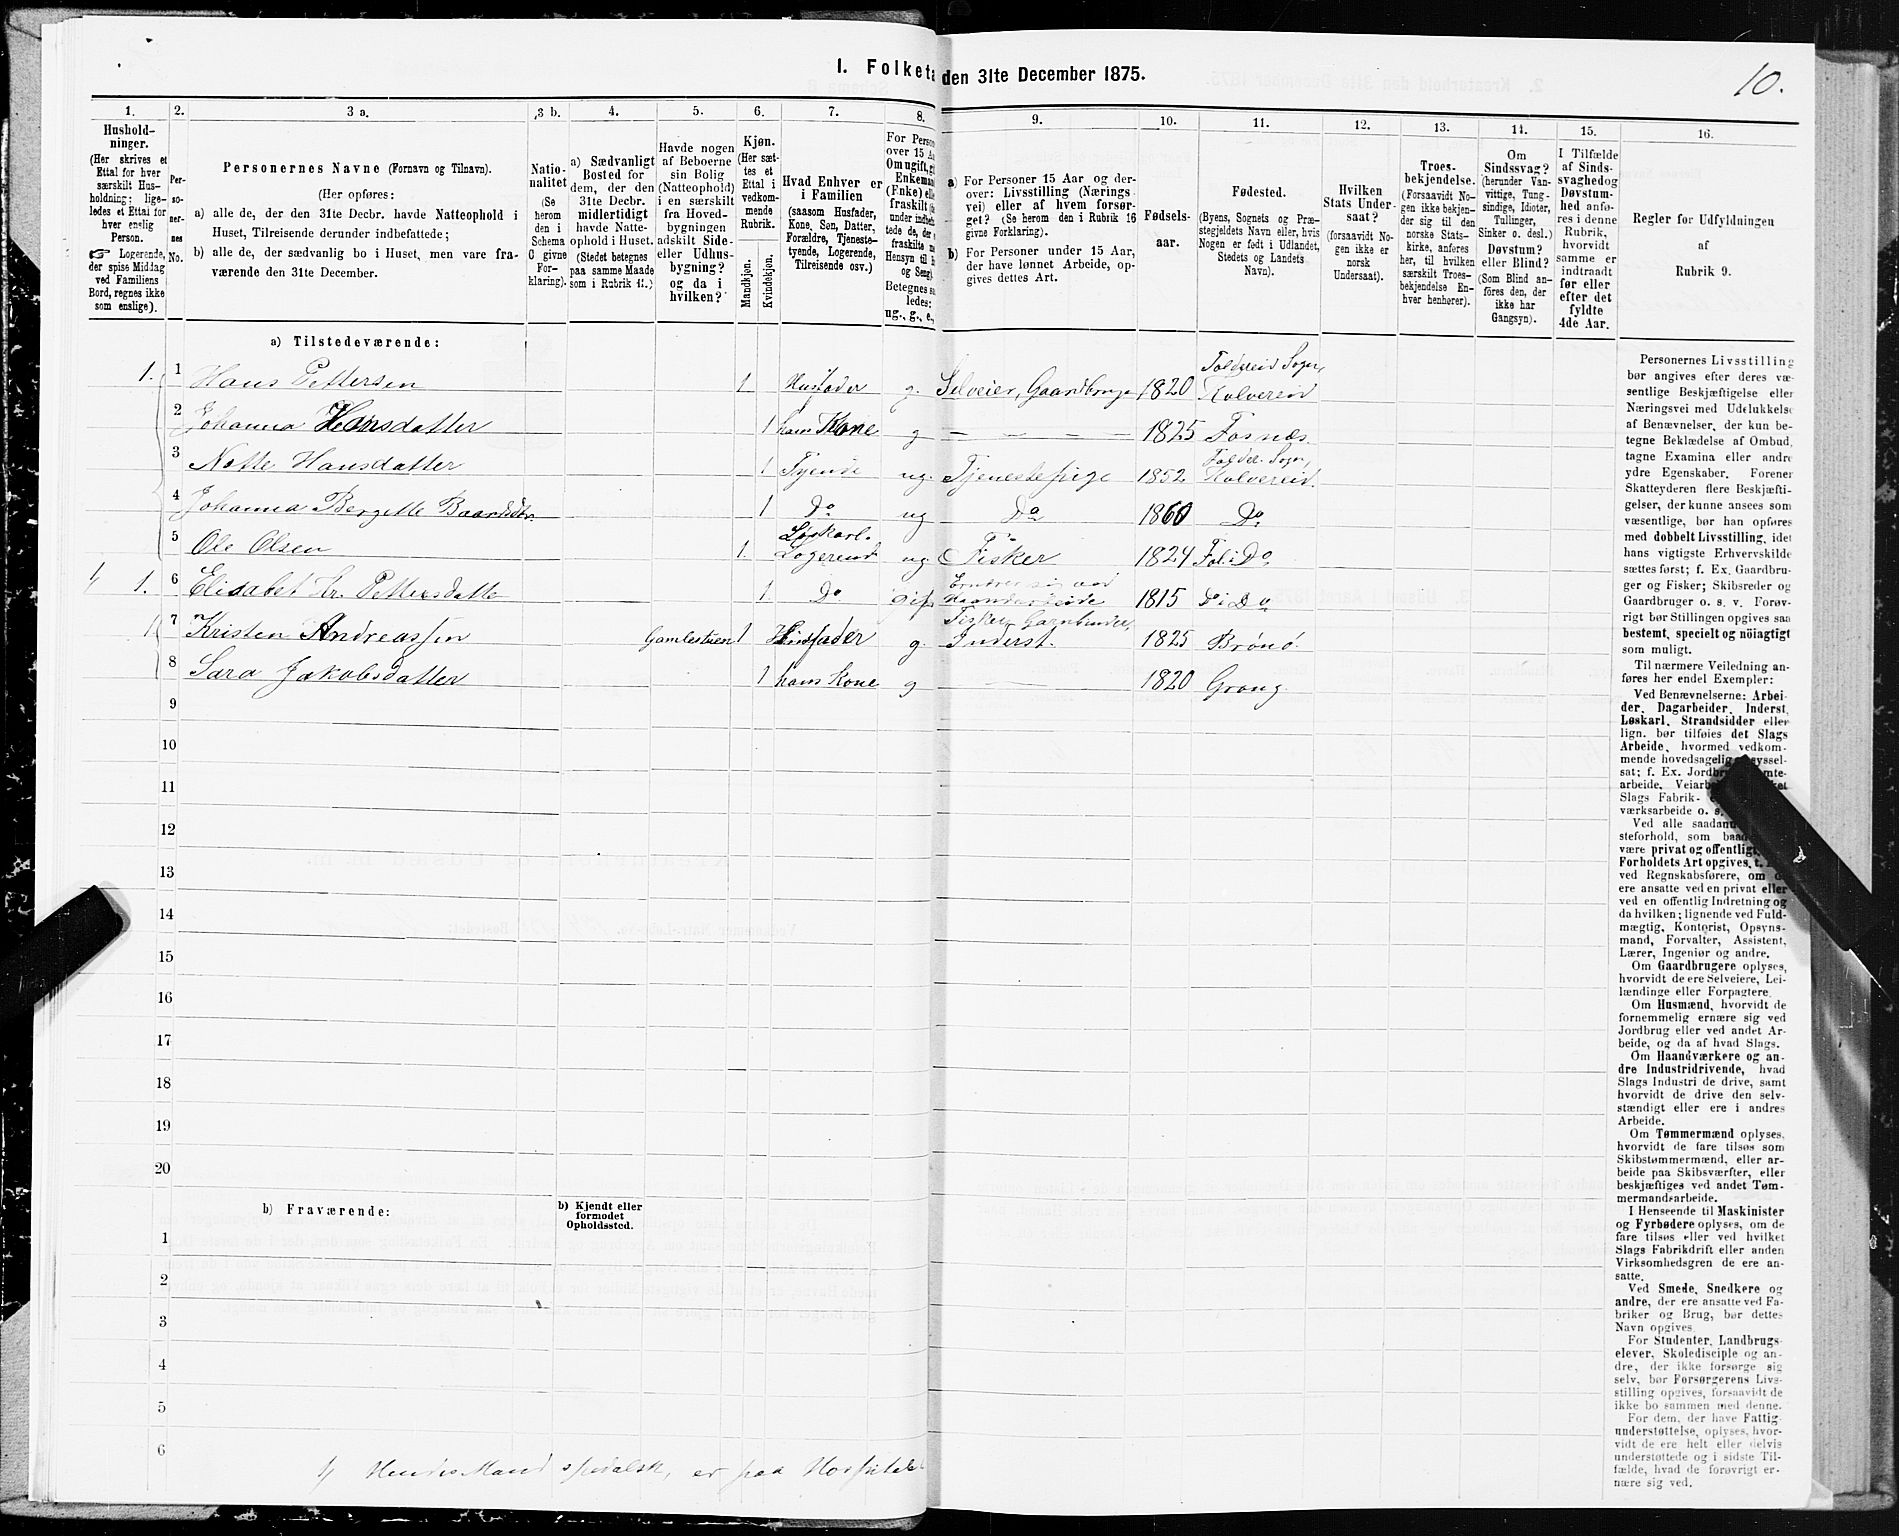 I. Folketa den 31te December 1875.
10.
1. 2. 3 a. 3 b. 4. 5. 6. 7. 8. 9. 10. 11. 12. 13. 14. 15. 16.
Hushold-
ninger.
(Her skrives et
Ettal for hver
særskilt Hus-
holdning; lige-
ledes et Ettal for
hver enslig
Person.
☞ Logerende,
der spise Middag
ved Familiens
Bord, regnes ikke
som enslige).
Per-
so-
ner-
nes
No.
Personernes Navne (Fornavn og Tilnavn).
(Her opføres:
a) alle de, der den 31te Decbr. havde Natteophold i
Huset, Tilreisende derunder indbefattede;
b) alle de, der sædvanlig bo i Huset, men vare fra-
værende den 31te December.
Natio-
nalitet
(Se
herom
den i
Schema
C givne
For-
klaring).
a) Sædvanligt
Bosted for
dem, der den
31te Decbr.
midlertidigt
havde Natte-
ophold i Huset.
(Stedet betegnes
paa samme Maade
som i Rubrik 11.)
Havde nogen
af Beboerne
sin Bolig
(Natteophold)
i en særskilt
fra Hoved-
bygningen
adskilt Side-
eller Udhus-
bygning?
og da i
hvilken?
Kjøn.
(Her sæt-
tes et
Ettal i
vedkom-
mende
Rubrik.
Mandkjøn.
Kvindekjøn.
Hvad Enhver er
i Familien
(saasom Husfader,
Kone, Søn, Datter,
Forældre, Tjeneste-
tyende, Logerende,
Tilreisende osv.)
For Person
over 15 A
Om ugift, g
Enkeman
(Fnke) elle
fraskilt
under indbe
tede de, der
fraskilte m
Hensyn til
og Seng.
Betegnes s
ledes:
ug., g., e.,
a) For Personer 15 Aar og der-
over: Livsstilling (Nærings
vei) eller af hvem forsør-
get? (Se herom den i Rubrik 16
givne Forklaring).
b) For Personer under 15 Aar,
der have lønnet Arbeide, op-
gives dettes Art.
Fødsels-
aar.
Fødested.
(Byens, Sognets og Præ-
stegjeldets Navn eller, hvis
Nogen er født i Udlandet,
Stedets og Landets
Navn).
Hvilken
Stats Under-
saat?
(forsaavidt No-
gen ikke er
norsk
Undersaat).
Troes-
bekjendelse.
(Forsaavidt No-
gen ikke bekjen-
der sig til den
norske Stats-
kirke, anføres
her, til hvilken
særskilt Troes-
bekjendelse En-
hver henhører).
Om
Sindssvag?
(herunder Van-
vittige, Tung-
sindige, Idioter,
Tullinger,
Sinker o. desl.)
Døvstum?
eller Blind?
(Som Blind an-
føres den, der
ikke har
Gangsyn).
I Tilfælde
af Sinds-
svaghed og
Døvstum-
hed anfø-
res i denne
Rubrik,
hvorvidt
samme er
indtraadt
før eller
efter det
fyldte
4de Aar.
Regler for Udfyldningen
af
Rubrik 9.
a) Tilstedeværende:
1. 1 Hans Pettersen 1 Husfader g. Selveier, Gaardbruger 1820 Foldereid Sogn, Kolvereid
2 Johanna Hansdatter 1 hans Kone g — — — — 1825 Fosnæs
3 Nette Hansdatter 1 Tyende ug. Tjenestepige 1852 Folder. Sogn, Kolvereid.
4 Johanna Bergitte Baardsdtr. 1 Do ug Do 1860 Do
5 Ole Olsen 1. Løskarl. Logerende ug. Fisker 1824 Fol. i Do
1/ 1. 6 Elisabet Kr. Pettersdatte 1 Do gift Ernærer sig ved Haandarbeide 1815 Do i Do
1 7 Kristen Andreassen Gamlestuen 1 Husfader g. Fisker, Garnbinder, Inderst. 1825 Brönö.
8 Sara Jakobsdatter 1 hans Kone g — 1820 Grong
9
10
11
12
13
14
15
16
17
18
19
20
b) Fraværende:
b) Kjendt eller
formodet
Opholdssted.
1
2
3
4
5
6
1/ Hendes Mand spedalsk, er paa Hospitale
Personernes Livsstilling
bør angives efter deres væ-
sentlige Beskjæftigelse eller
Næringsvei med Udelukkelse
af Benævnelser, der kun be-
tegne Beklædelse af Ombud,
tagne Examina eller andre
ydre Egenskaber. Forener
Skatteyderen flere Beskjæfti-
gelser, der kunne ansees som
væsentlige, bør han opføres
med dobbelt Livsstilling, idet
hans vigtigste Erhvervskilde
sættes først; f. Ex. Gaardbru-
ger og Fisker; Skibsreder og
Gaardbruger o. s. v. Forøv-
rigt bør Stillingen opgives saa
bestemt, specielt og nöiagtigt
som muligt.
Til nærmere Veiledning an-
føres her endel Exempler:
Ved Benævnelserne: Arbei-
der, Dagarbeider, Inderst,
Løskarl, Strandsidder eller
lign. bør tilføies det Slags
Arbeide, hvormed vedkom-
mende hovedsagelig syssel-
sat; f. Ex. Jordbr mte-
arbeide, Veiarb ket
Slags Fabrik-
værksarbeide o. s.
Ved alle saadan
steforhold, som baa
være privat og offentligt,
Forholdets Art opgives, t.
ved Regnskabsførere, om
ere ansatte ved en privat eller
ved en offentlig Indretning og
da hvilken; lignende ved Fuld-
mægtig, Kontorist, Opsyns-
mand, Forvalter, Assistent,
Lærer, Ingeniør og andre.
Om Gaardbrugere oplyses,
hvorvidt de ere Selveiere, Lei-
lændinge eller Forpagtere.
Om Husmænd, hvorvidt de
fornemmelig ernære sig ved
Jordbrug eller ved andet Ar-
beide, og da af hvad Slags.
Om Haandværkere og an-
dre Industridrivende, hvad
Slags Industri de drive, samt
hvorvidt de drive den selv-
stændigt eller ere i andres
Arbeide.
Om Tømmermænd oplyses,
hvorvidt de fare tilsøs som
Skibstømmermænd, eller ar-
beide paa Skibsværfter, eller
beskjæftiges ved andet Tøm-
mermandsarbeide.
I Henseende til Maskinister
og Fyrbødere oplyses, om de
fare tilsøs eller ved hvilket
Slags Fabrikdrift eller anden
Virksomhedsgren de ere an-
satte.
Ved Smede, Snedkere og
andre, der ere ansatte ved Fa-
briker og Brug, bør dettes
Navn opgives.
For Studenter, Landbrugs-
elever, Skoledisciple og an-
dre, der ikke forsørge sig
selv, bør Forsørgerens Livs-
stilling opgives, forsaavidt de
ikke bo sammen med denne.
For dem, der have Fattig-
understøttelse, oplyses, hvor-
vidt de ere helt eller delvis
understøttede og i sidste Til-
fælde, hvad de forøvrigt er-
nære sig ved.